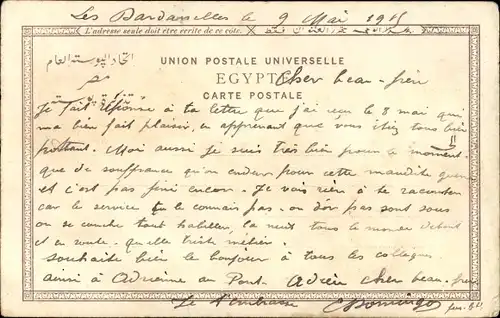 Les Dardanelles le 9 Mai 1915
L'adresse seule doit être écrite de ce côté.
اتحاد البوستة العام
مصر
UNION POSTALE UNIVERSELLE
EGYPT
Cher beau-frère
CARTE POSTALE
تذكرة بوستة
Je fait réponse à ta lettre que j'ai reçu le 8 mai qui
ma bien fait plaisir, en apprenant que vous étiez tous bien
portant. Moi aussi je suis très bien pour le moment
que de souffrance qu'on endure pour cette maudite guerre
et c'est pas fini encore. Je vais rien à te raconter
car le service tu le connais pas. on dor pas sont sous
on se couche tout habiller, la nuit tous le monde debout
et en route. quelle triste métier.
souhaite bien le bonjour à tous les collègues
ainsi à Adrienne au Pont. Adieu cher beau-frère
Je t'embrasse Domingo